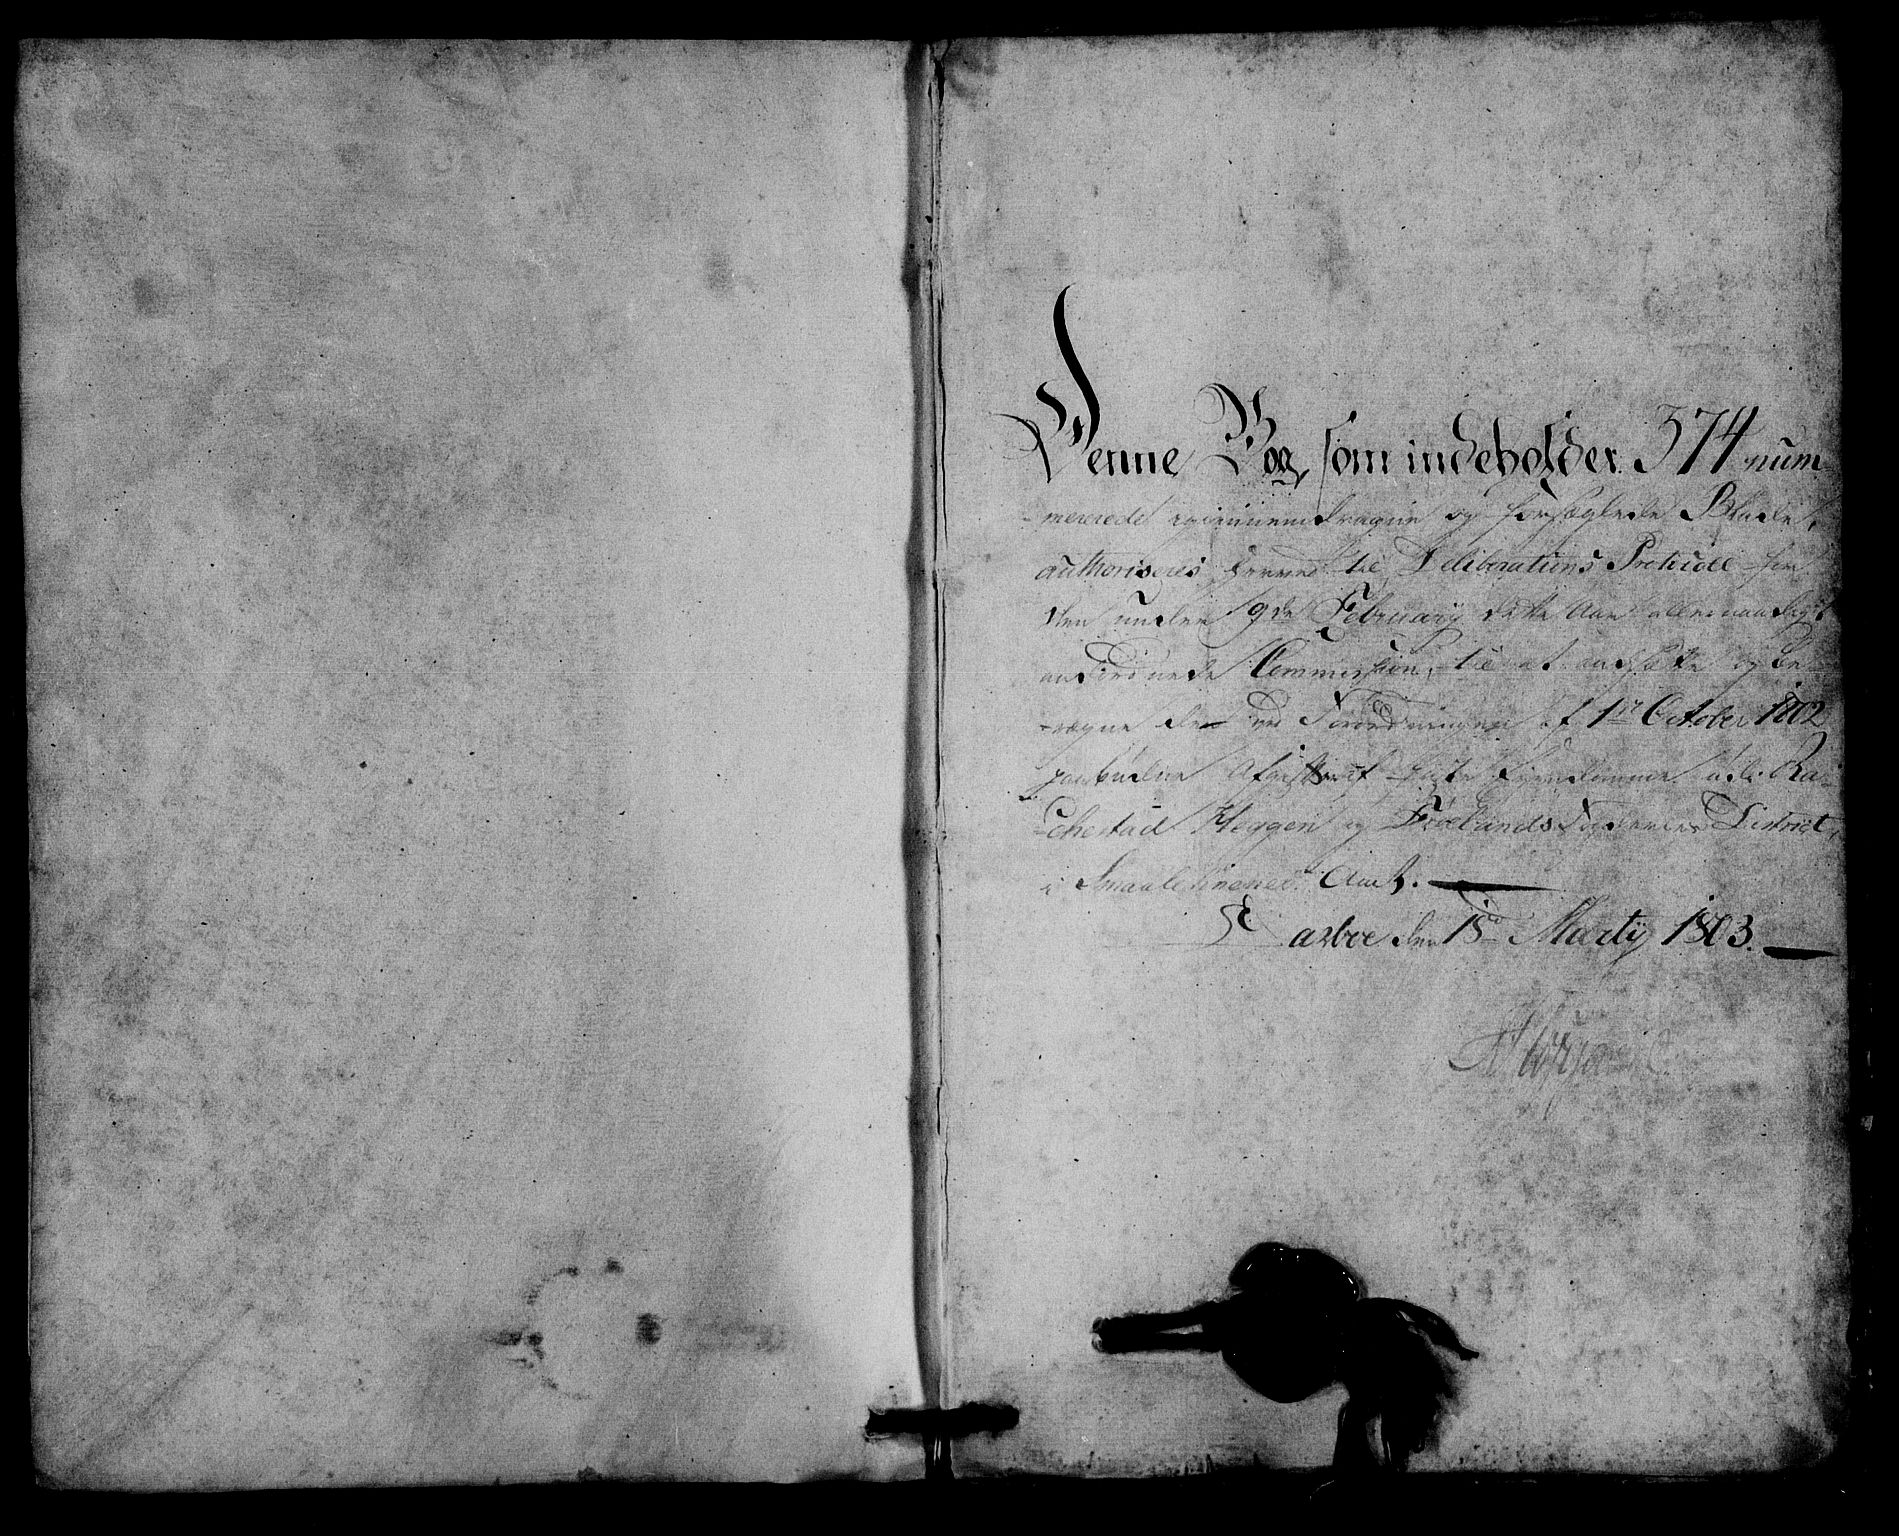 Denne Bog, som indeholder 374 num-
-mererede igiennemdragne og forseglede Blade,
authoriseres herved til Deliberations Protocol for
den under 9de February dette Aar allernaadigst
anordnede Commission, til at ansætte og be-
-regne den ved Forordningen af 1ste October 1802
paabudne Afgift af faste Eiendomme udi Ra-
-chestad Heggen og Frølands Fogderies District,
i Smaalehnenes Amt.
Carboe den 18de Martij 1803.